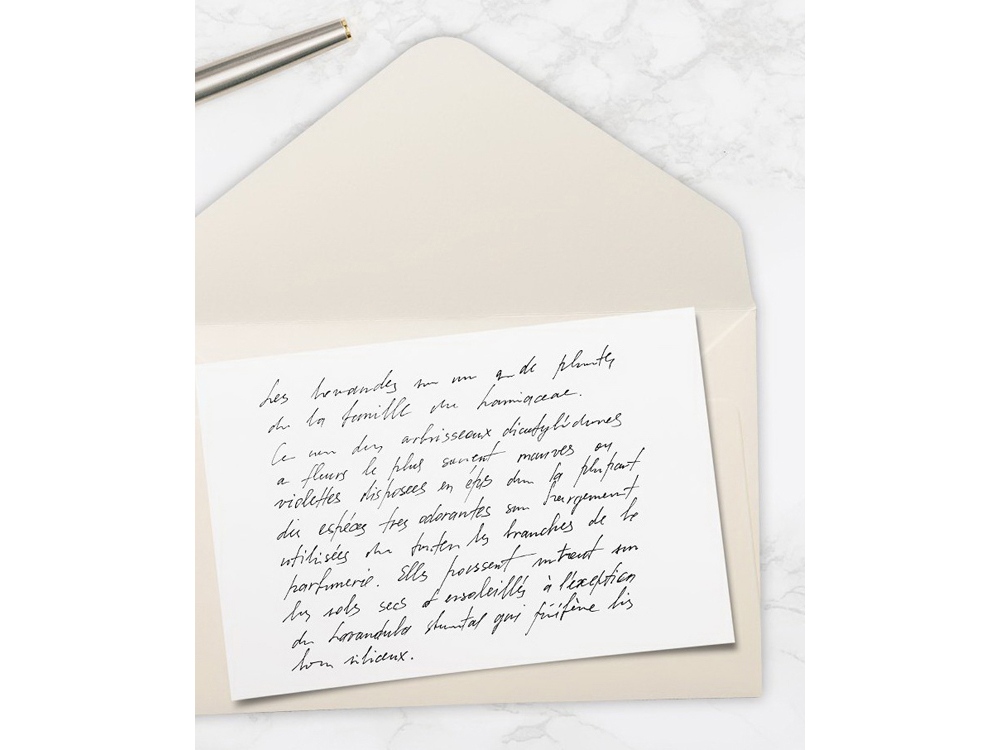 Les un de plantes
de la famille du Lamiaceae.
Ce arbrisseaux dicotylédones
a fleurs le plus souvent mauves ou
violettes disposees en épis dan la plupart
espéces tres odorantes son largement
utilisées les branches de la
parfumerie. Elles poussent surtout sur
les sols secs et ensoleillés à l'éxception
du Lavandula qui préfère les
siliceux.